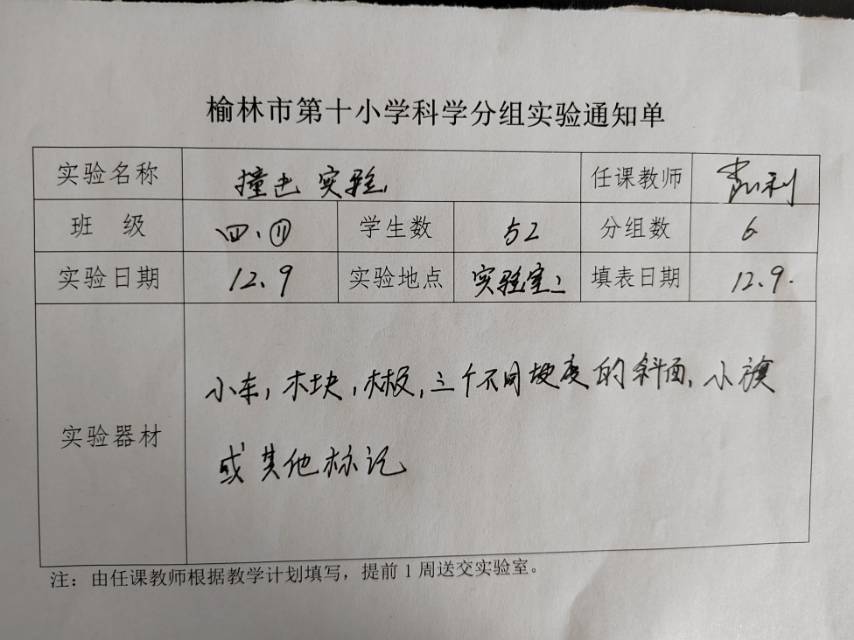 榆林市第十小学科学分组实验通知单
实验名称 撞击实验 任课教师
班 级 四、⑪ 学生数 52 分组数 6
实验日期 12、9 实验地点 实验室二 填表日期 12、9.
实验器材
小车，木块，木板，三个不同坡度的斜面、小旗
或其他标记
注：由任课教师根据教学计划填写，提前1周送交实验室。